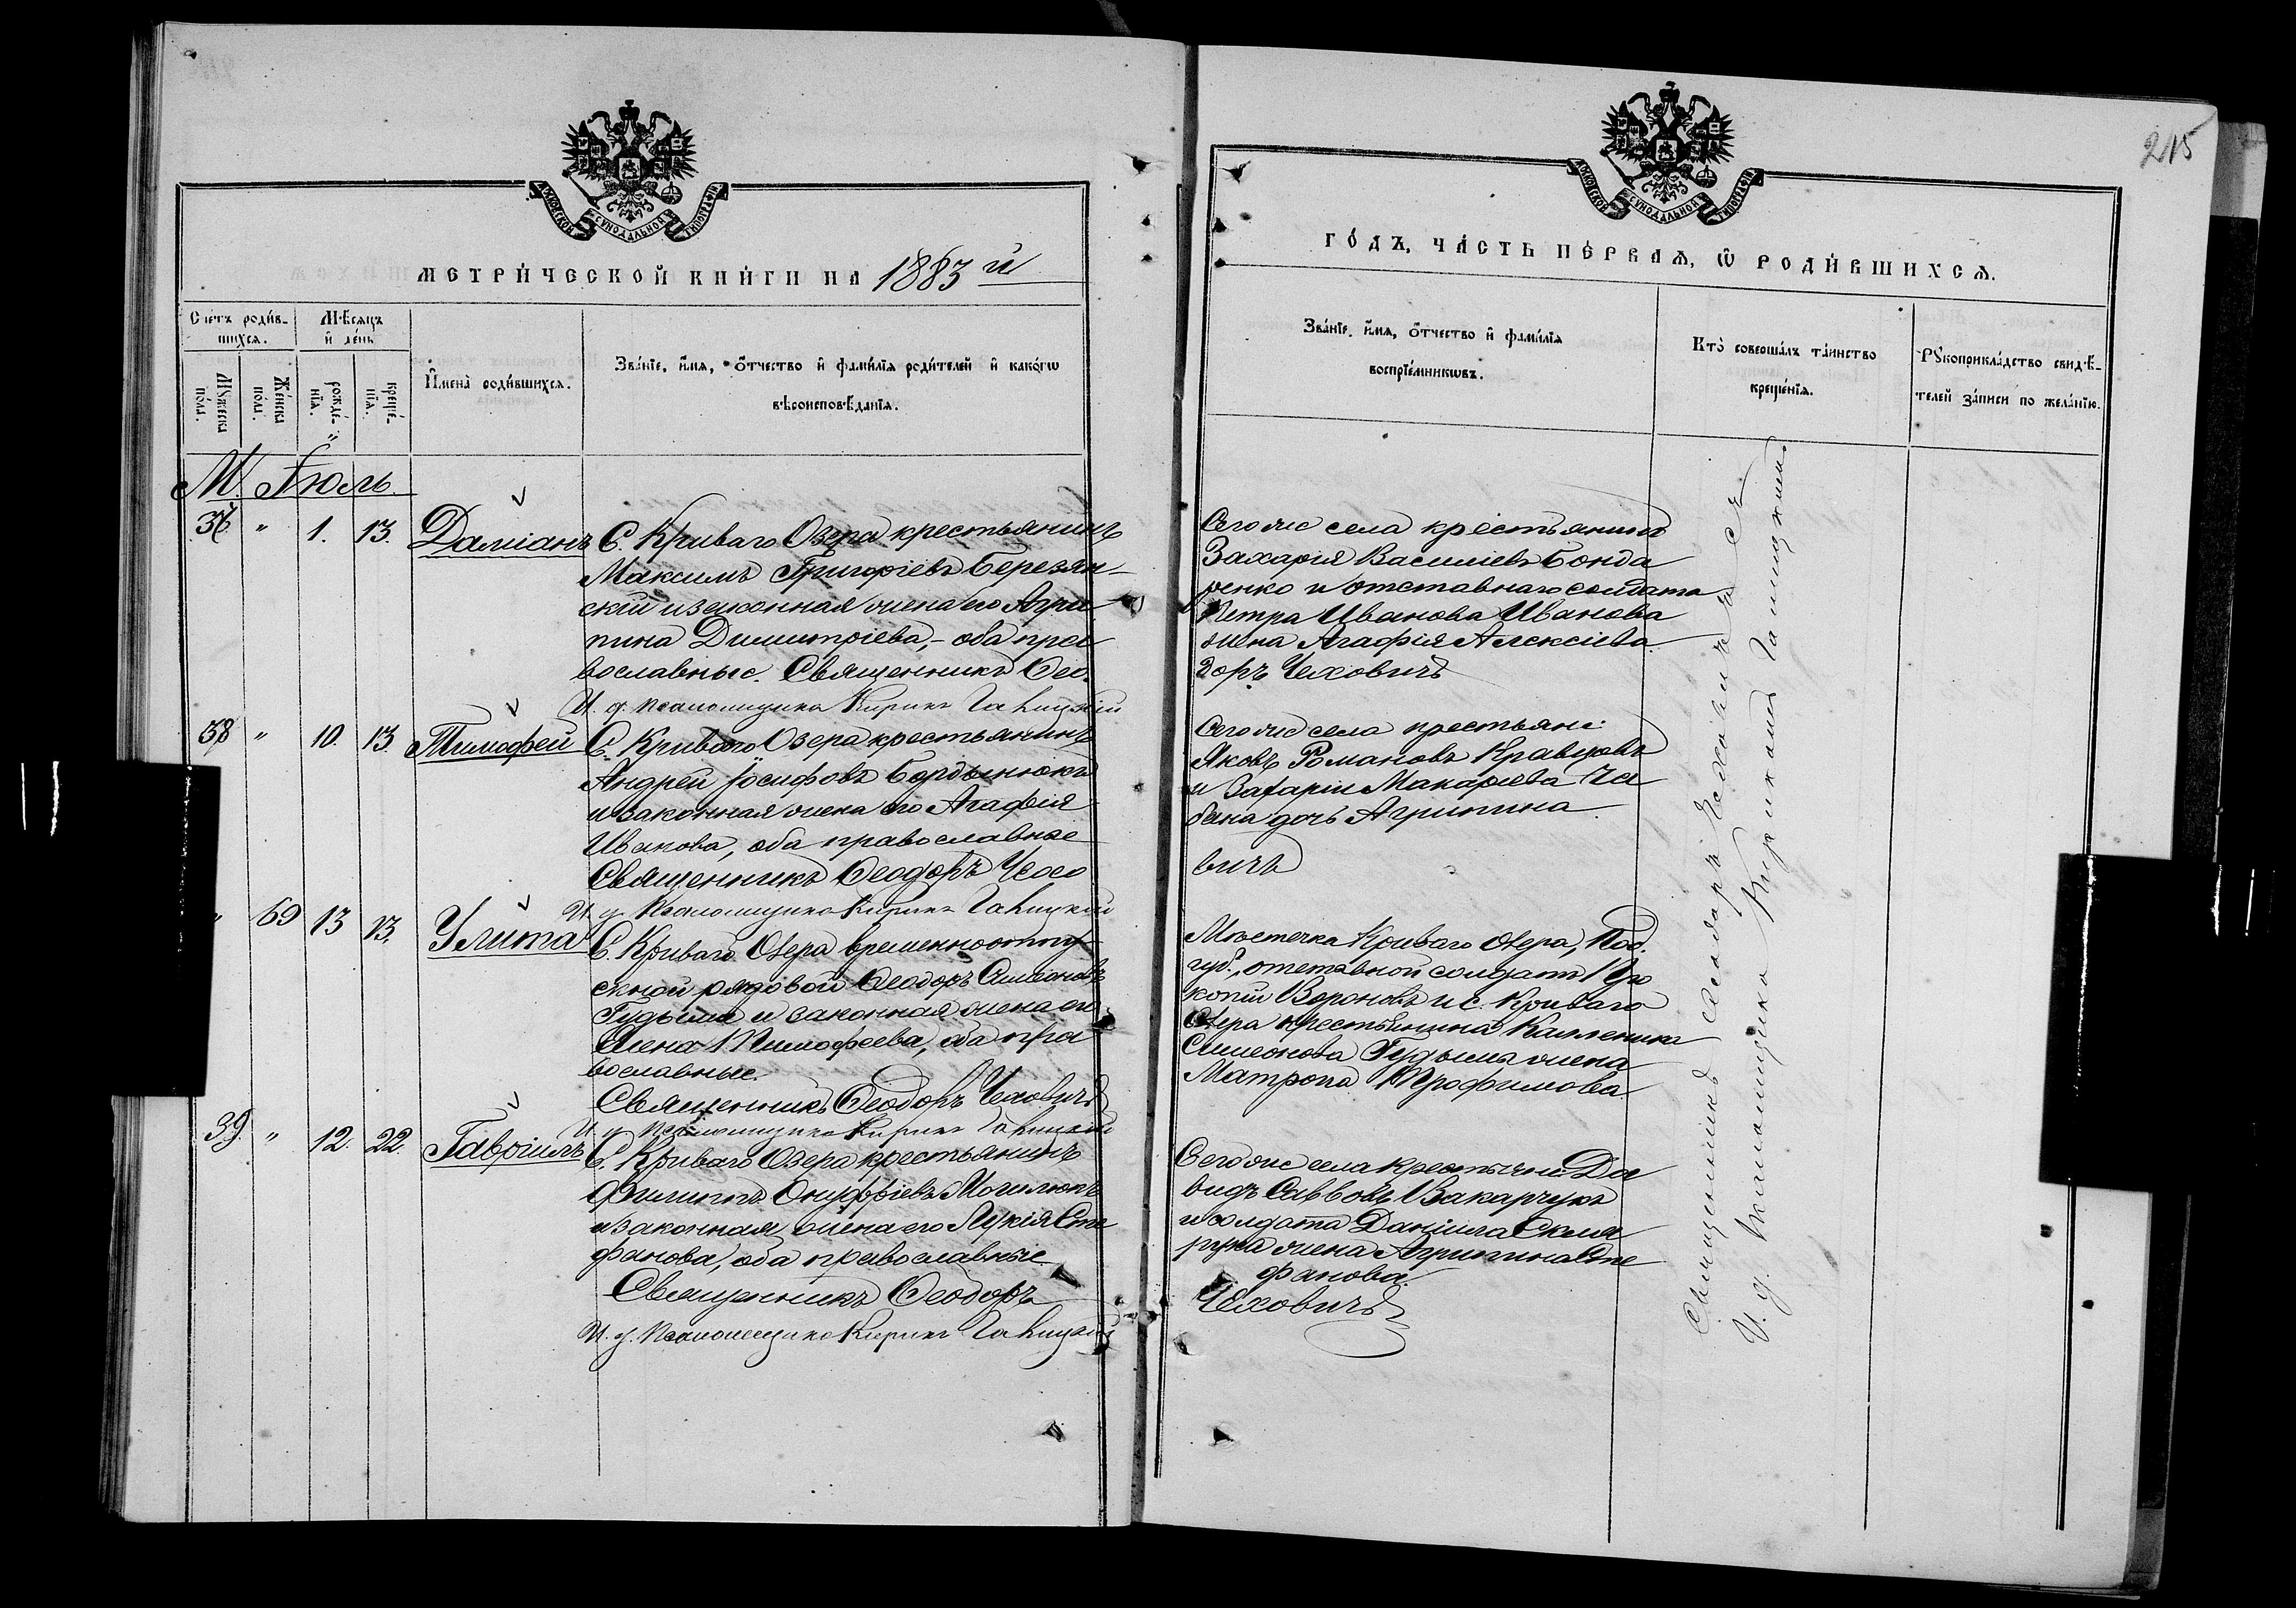 215
МОСКОВСКОЙ СѴНОДАЛЬНОЙ ТИПОГРАФІИ
МЕТРИ́ЧЕСКОЙ КНИ́ГИ НА 1883й
Сче́тъ роди́в-
шихсѧ.
Мѣсѧцъ
и҆ де́нь
Мꙋжеска
по́лꙋ.
Же́нска
по́лꙋ.
рожде́-
нїѧ.
креще́-
нїѧ.
И҆мена̀ роди́вшихсѧ.
Зва́нїе, и҆́мѧ, ѻ҆́тчество и҆ фами́лїѧ роди́телей и҆ како́гѡ
вѣроисповѣ́данїѧ.
М. Іюль.
" 1. 13. Даміанъ С. Криваго Озера крестьянинъ
Максимъ Григоріевъ Березян-
скій и законная жена его Агри-
пина Димитріева,- оба пра
вославные. Священникъ Ѳео-
И. д. Псаломщика Кирикъ
38 " 10. 13. Тимофей С. Криваго Озера крестьянинъ
Андрей Іосифовъ
и законная жена его Агафія
Иванова, оба православные
Священникъ Ѳеодоръ Чехо
И. д. Псаломщика Кирикъ
" 69 13 13. Улита С. Криваго Озера временноотпу-
скной рядовой Ѳеодоръ Симеоновъ
Гудыма и законная жена его
Елена Тимофеева, оба пра
вославные.
Священникъ Ѳеодоръ Чеховичъ
И. д. Псаломщика Кирикъ
39. " 12. 22. Гавріилъ С. Криваго Озера крестьянинъ
Филиппъ Онуфріевъ Могилюкъ
и законная жена его Лукія Сте
фанова, оба православные
Священникъ Ѳеодоръ
И. д. Псаломщика Кирикъ
МОСКОВСКОЙ СѴНОДАЛЬНОЙ ТИПОГРАФІИ
ГО́ДЪ, ЧА́СТЬ ПЕ́РВАѦ, Ѡ҆ РОДИ́ВШИХСѦ.
Зва́нїе, и҆́мѧ, ѻ҆́тчество и҆ фами́лїѧ
воспрїе́мникѡвъ.
Кто̀ соверша́лъ та́инство
креще́нїѧ.
Рꙋкоприкла́дство свидѣ́-
телей за́писи по жела́нїю.
Того же села крестьянинъ
Захарія Василіевъ Бонда
ренко и отставнаго солдата
Петра Иванова Иванова
жена Агафія Алексіева.
доръ Чеховичъ
Того же села крестьяне:
Яковъ Романовъ Кравцовъ
и Захаріи Макаріева Ча
бана дочь Агрипина.
вичъ
Мѣстечка Криваго Озера, Под.
губ., отставной солдатъ Про
копій Вороновъ и с. Криваго
Озера крестьянина Каллиника
Симеонова Гудыма жена
Матрона Трофимова.
Того же села крестьяни: Да
видъ Саввовъ Вакарчукъ
и солдата Даніила Скля
рука жена Агрипина Сте
фанова.
Чеховичъ
Священникъ Ѳеодоръ Чеховичъ съ
И. д. Псаломщика Кирикомъ